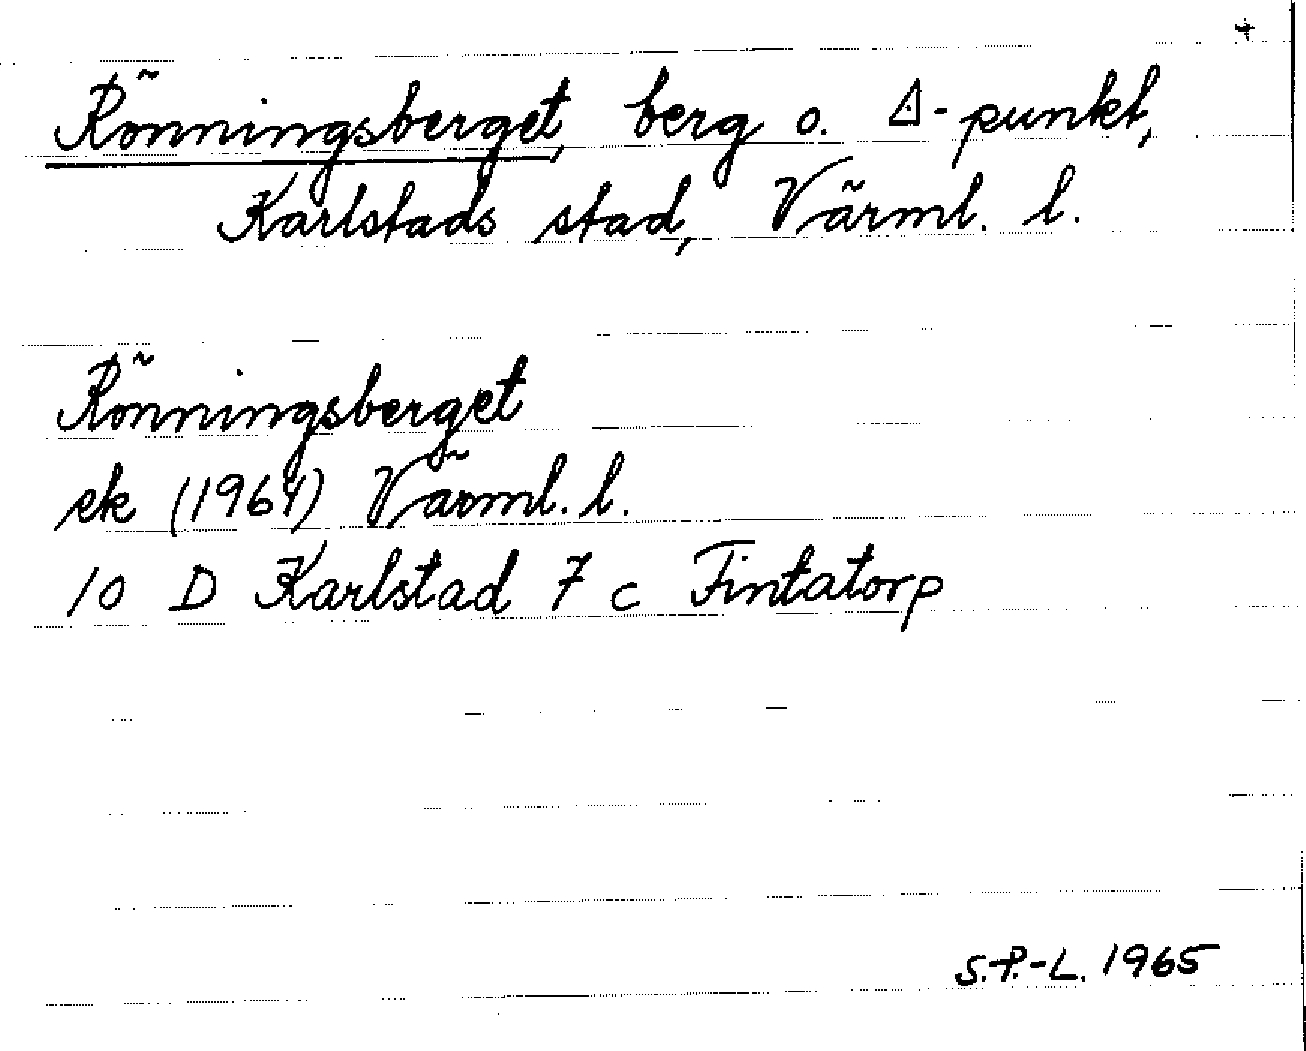 Rönningsberget, berg o. ∆-punkt,
Karlstads stad, Värml. l.
Rönningsberget
ek (1964) Värml. l.
10 D Karlstad 7 c Fintatorp
S.P.-L. 1965